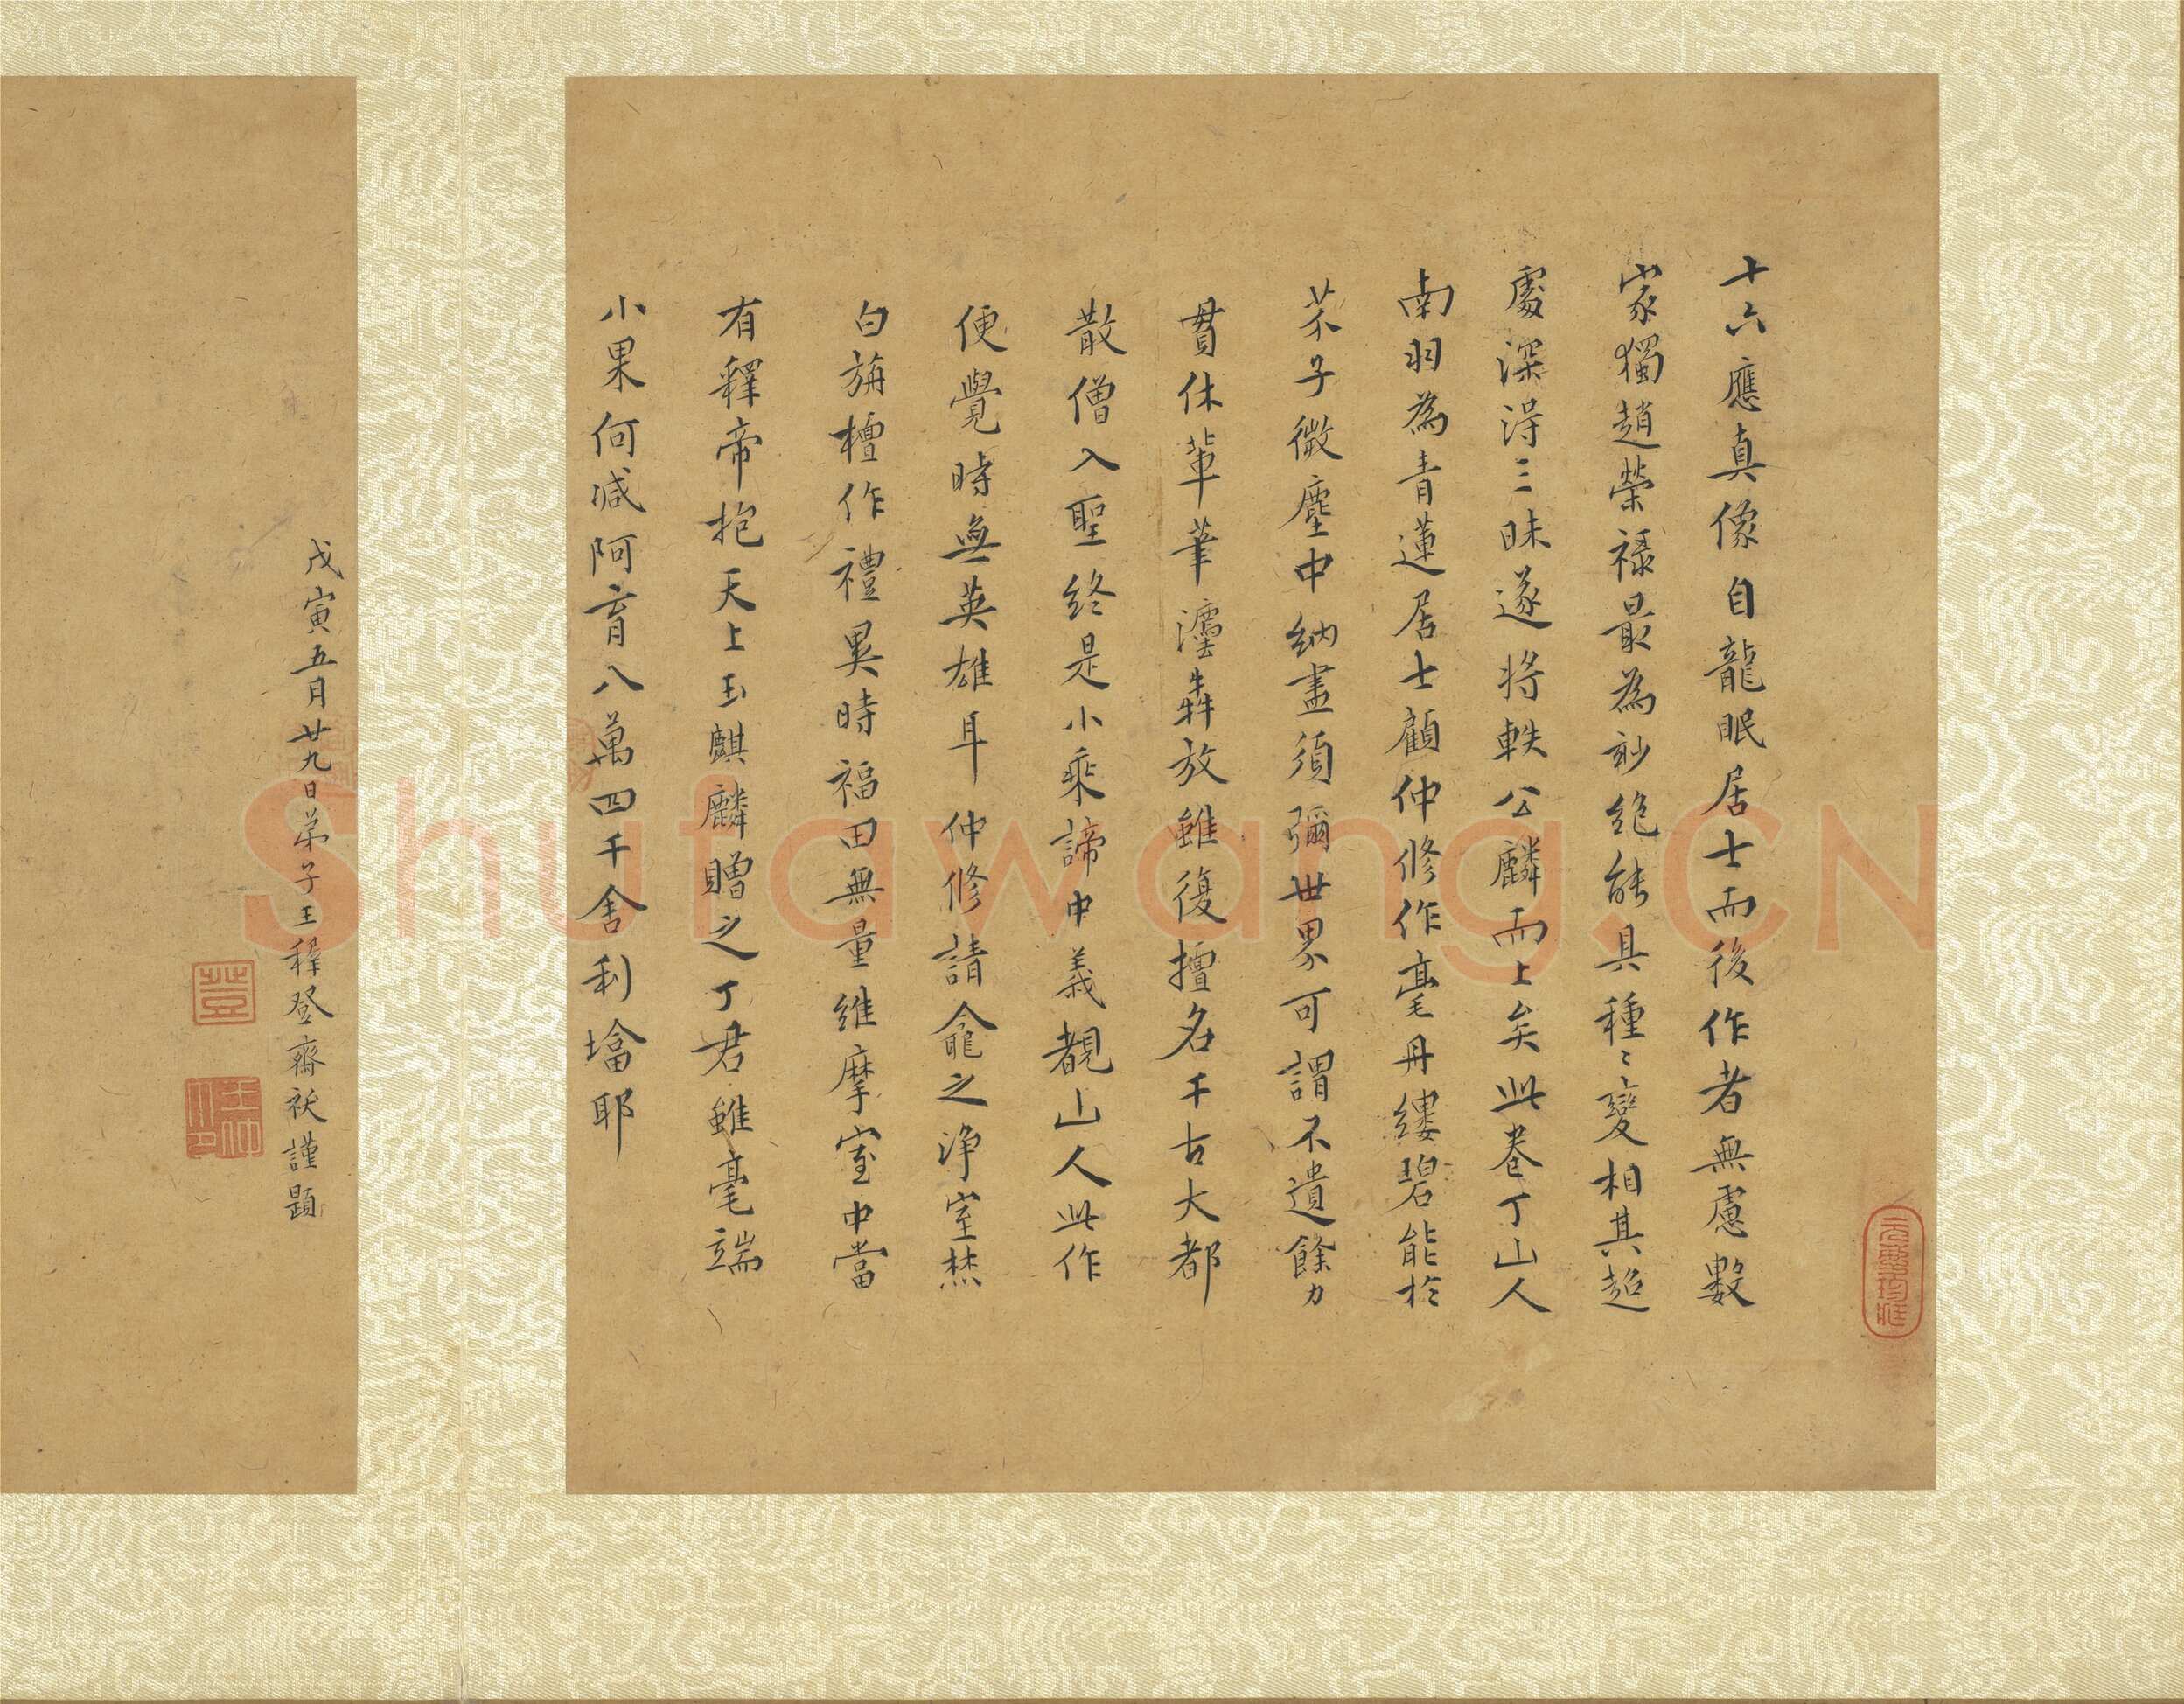 十六應真像自龍眠居士而後作者無慮數
家獨趙榮祿最為玅絕能具種〻變相其超
處深得三昧遂將軼公麟而上矣此卷丁山人
南羽為青蓮居士顧仲修作毫丹縷碧能於
芥子微塵中納盡須彌世界可謂不遺餘力
貫休輩筆灋犇放雖復擅名千古大都
散僧入聖終是小乘諦中義覩山人此作
便覺時無英雄耳仲修請龕之淨室焚
白旃檀作禮異時福田無量維摩室中當
有釋帝抱天上玉麒麟贈之丁君雖毫端
小果何減阿育八萬四千舍利墖耶
戊寅五月廿九日弟子王穉登齋祓謹題
登
Shufawang.CN